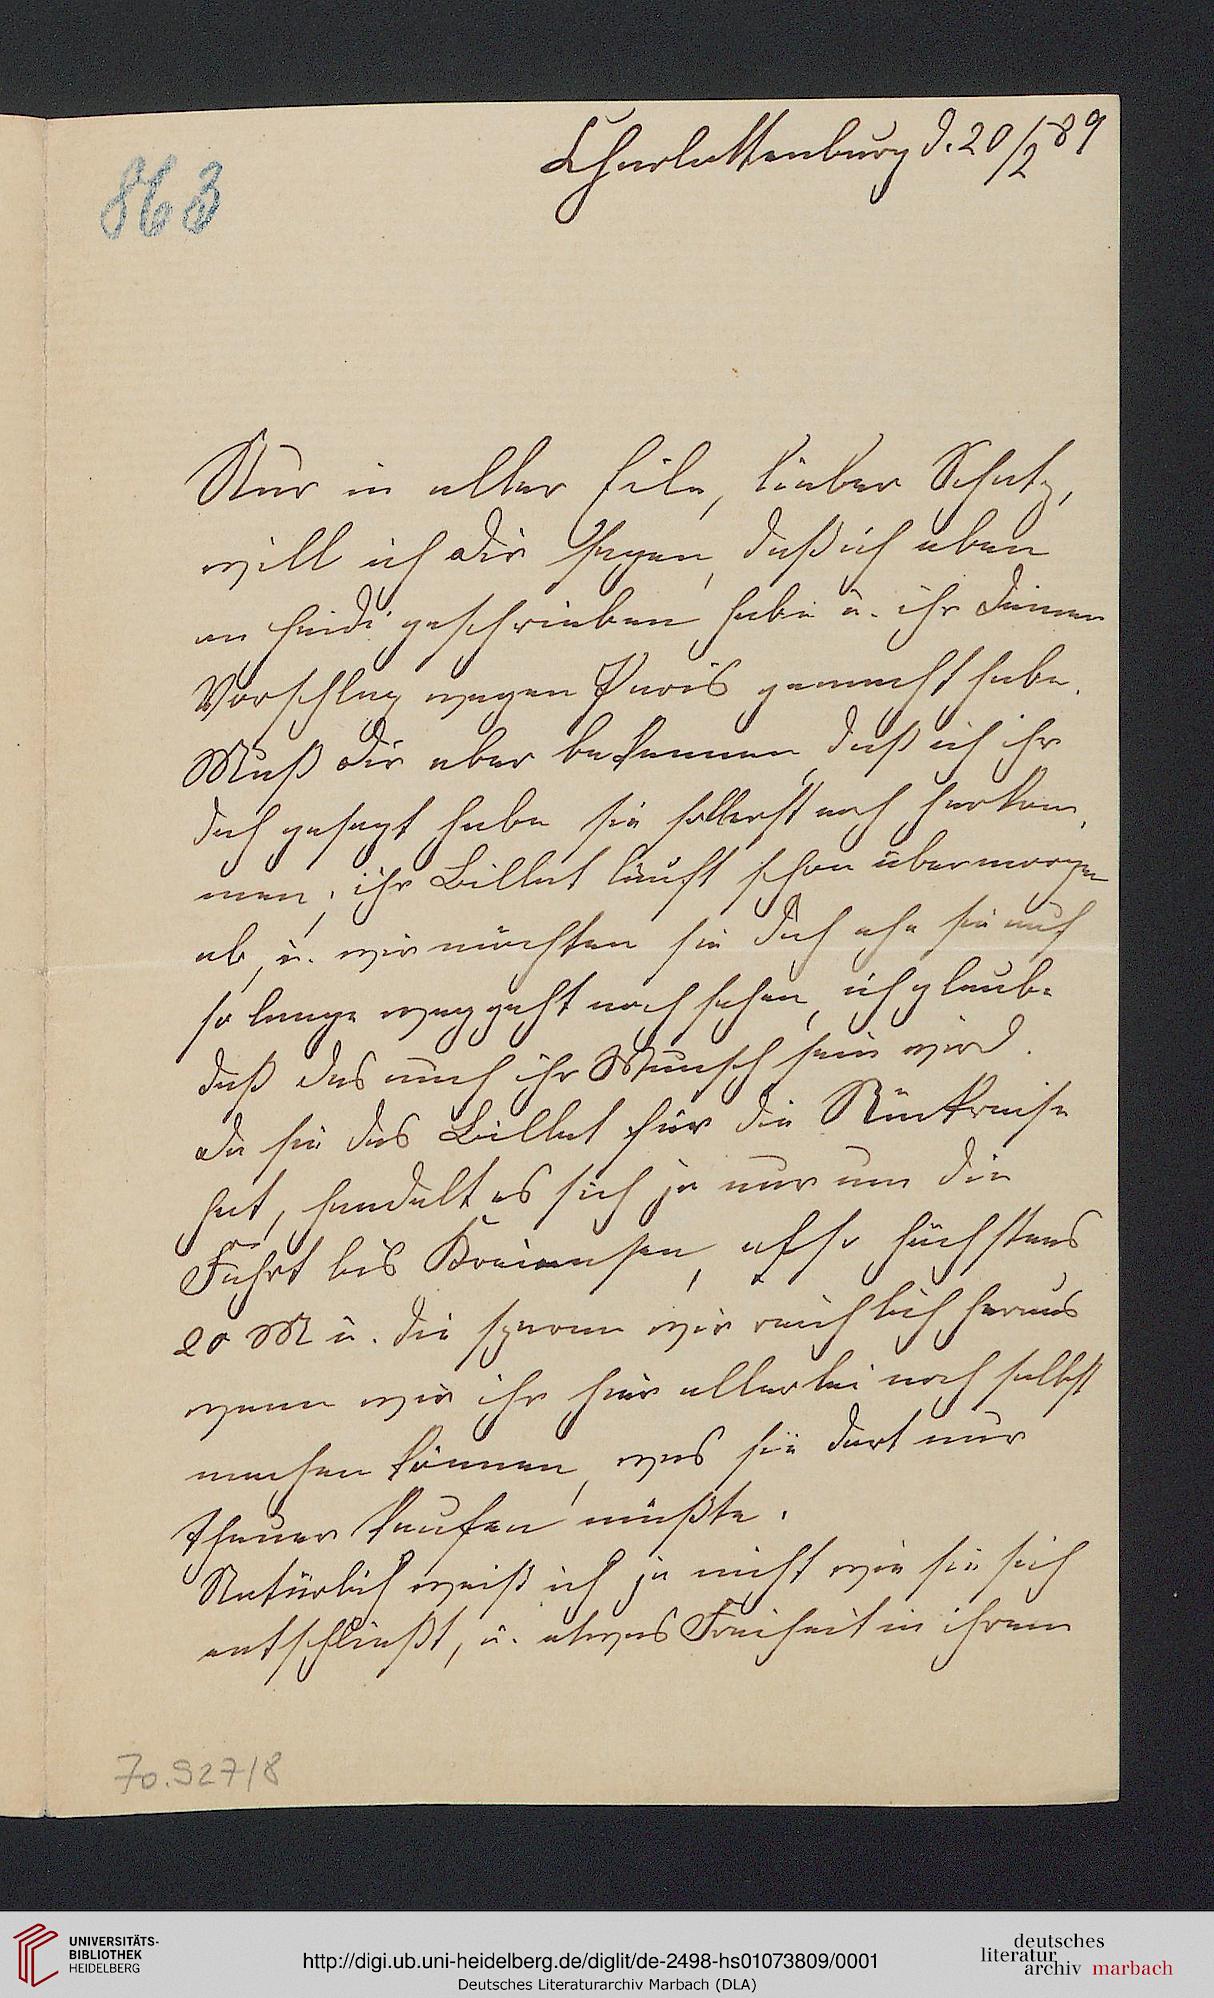 Charlottenburg d. 20/2 89
863
Nur in aller Eile, lieber Schatz,
will ich Dir sagen, daß ich eben
an Heidi geschrieben habe u. ihr Deinen
Vorschlag wegen Paris gemacht habe.
Muß Dir aber bekennen, daß ich ihr
doch gesagt habe sie sollerst noch herkom
men; ihr Billet läuft schon übermorgen
ab, u. wir möchten sie doch ehe sie auf
so lange weggeht noch sehen, ich glaube
daß das auch ihr Wunsch sein wird.
Da sie das Billet für die Rückreise
hat, handelt es sich ja nur um die
Fahrt bis Kreiensen, also höchstens
20 M u. die sparen wir reichlich heraus
wenn wir ihr hier allerlei noch selbst
machen können, was sie dort nur
theuer kaufen müßte.
Natürlich weiß ich ja nicht wie sie sich
entschließt, u. etwas Freiheit in ihrem
70.927/8
UNIVERSITÄTS-
BIBLIOTHEK
HEIDELBERG
http://digi.ub.uni-heidelberg.de/diglit/de-2498-hs01073809/0001
Deutsches Literaturarchiv Marbach (DLA)
deutsches
literatur
archiv marbach